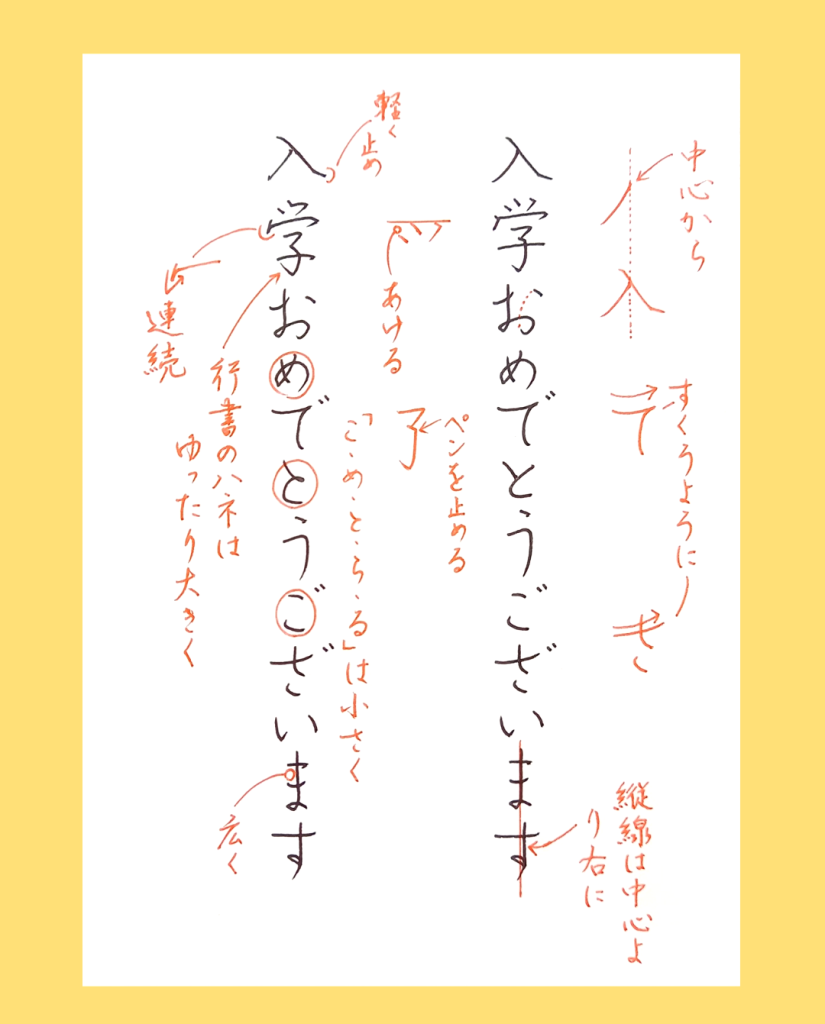 中心から
すくうように
縦線は中心よ
り右に
入学おめでとうございます
ペンを止める
あける
軽く止め
「こ・め・と・ら・る」は小さく
入学おめでとうございます
広く
行書のハネは
ゆったり大きく
連続